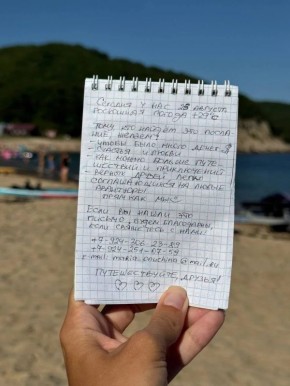 Сегодня у нас 28 августа
роскошная погода +27°С
Тому, кто найдет это посла
ние, желаем:
- чтобы было много денег,
счастья и любви
- как можно больше путе-
шествий и приключений
- верных друзей, легко
соглашающихся на любые
авантюры!
прям как мы
Если вы нашли это
письмо, будем благодарны,
если свяжетесь с нами:
e-mail: @mail.ru
Путешествуйте, друзья!